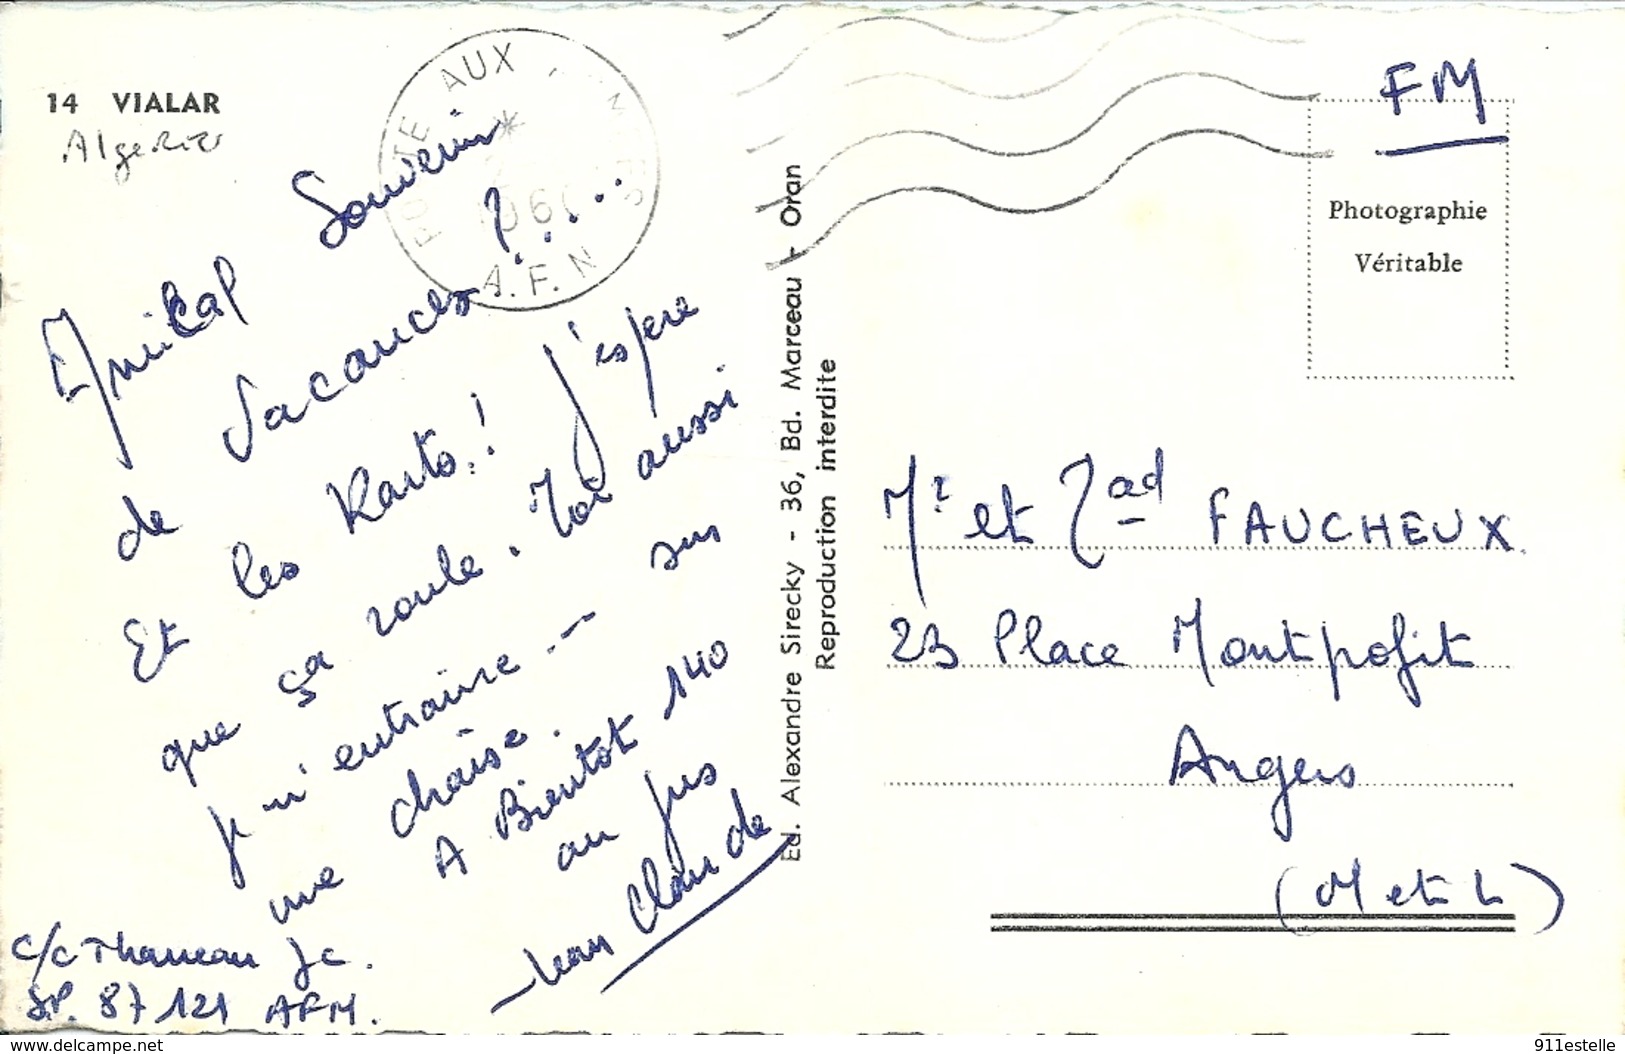 14 VIALAR
Algérie
POSTE AUX ARMEES
*
196
A.F.N
FM
Photographie
Véritable
Amical Souvenir
de Vacances ! ? ....
Et les Karts..! J'espere
que sa roule. Moi aussi
je m'entraine -- sur
une chaise.
A Bientot 140
au jus
Jean Claude
C/C Thareau JC.
SP. 87 121 AFN.
Ed. Alexandre Sirecky - 36, Bd. Marceau - Oran
Reproduction interdite
Mr et Mad FAUCHEUX
23 Place Montprofit
Angers
(M et L)
www.delcampe.net
911estelle